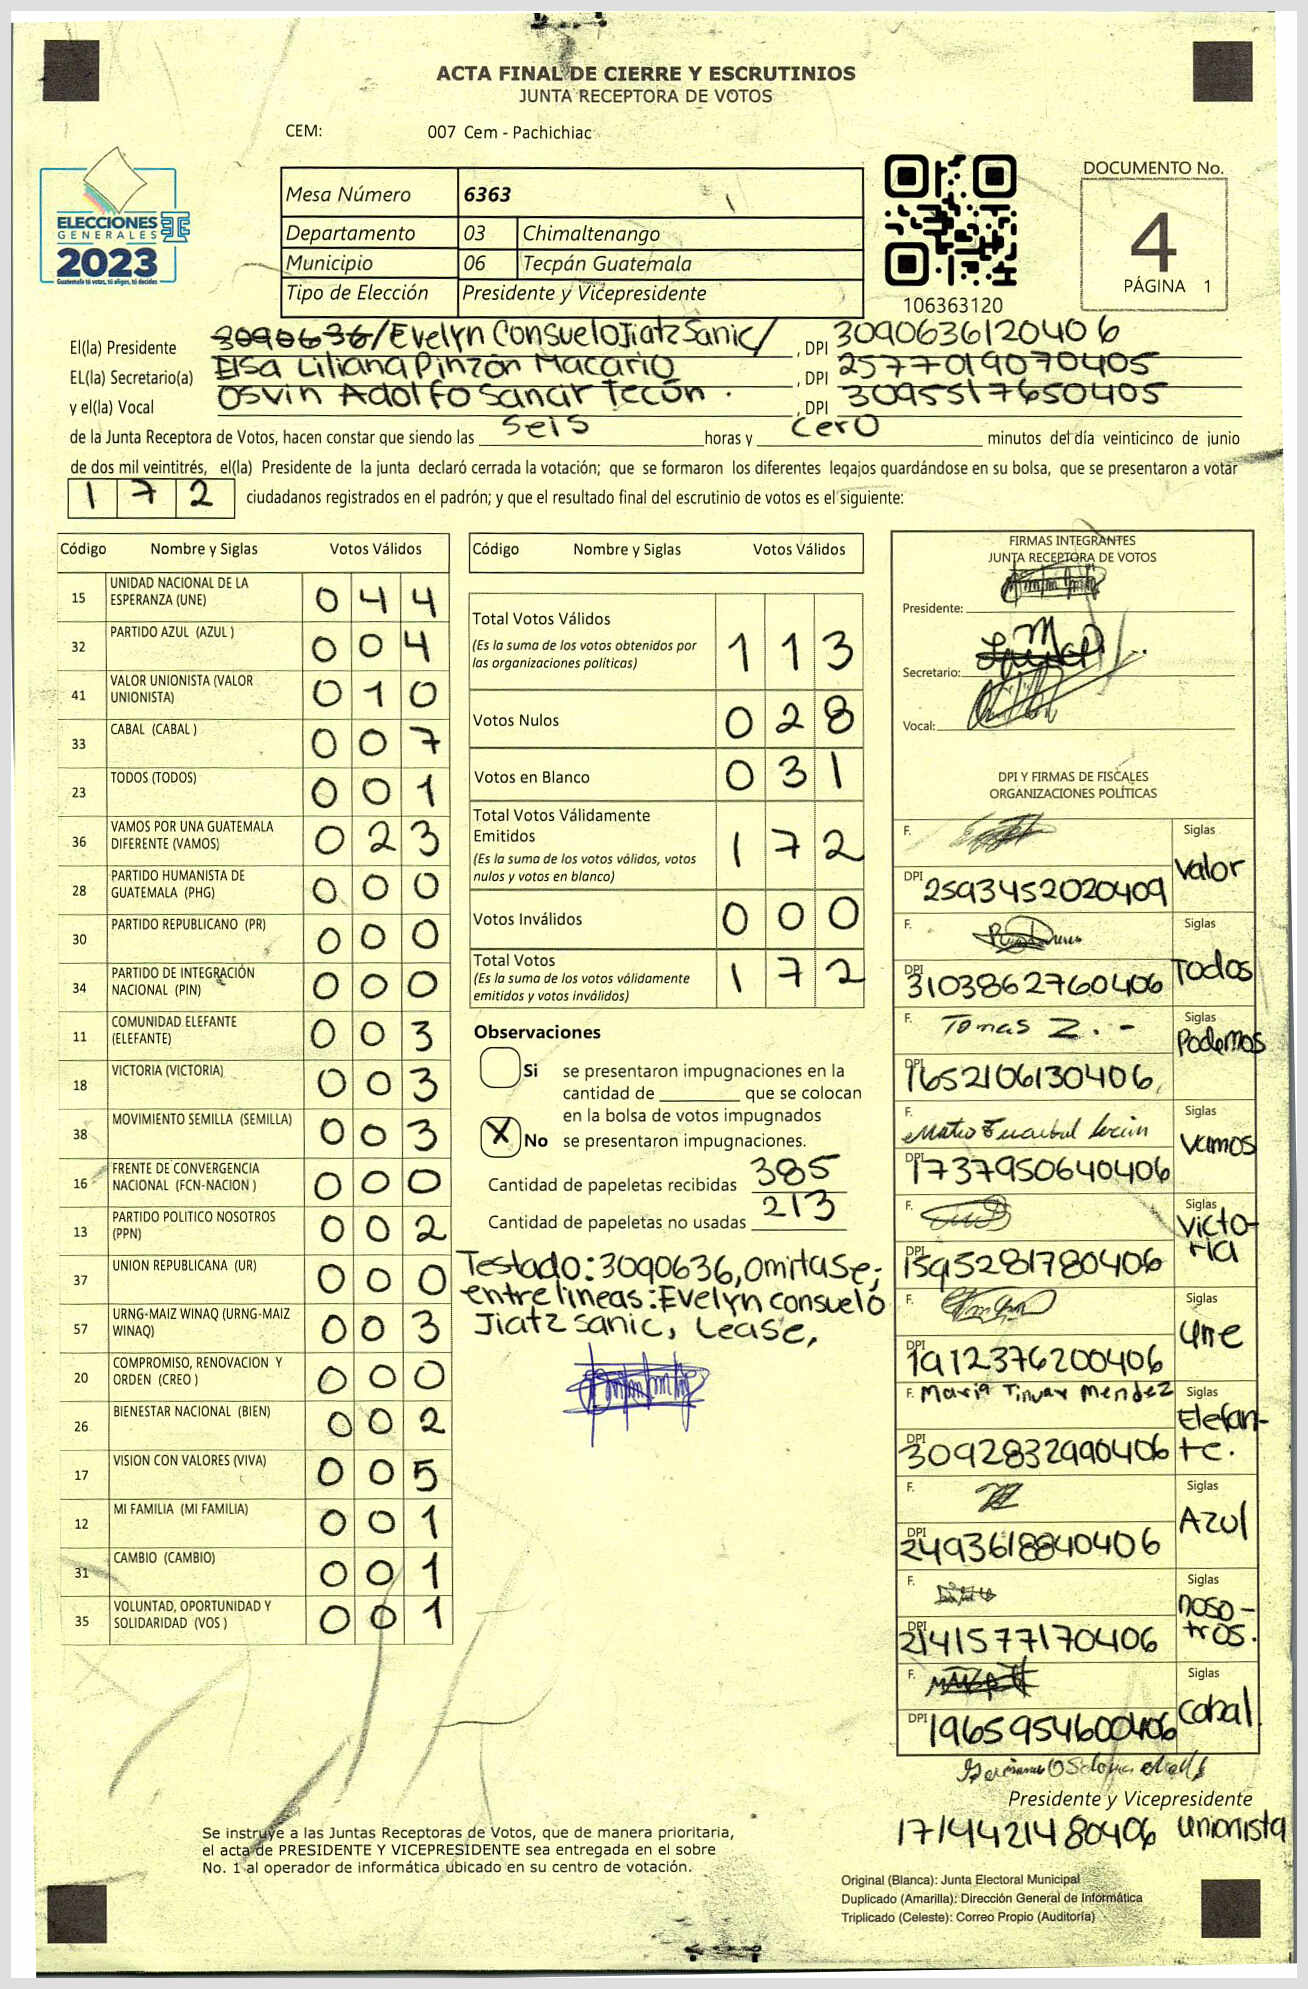 ACTA FINAL DE CIERRE Y ESCRUTINIOS
JUNTA RECEPTORA DE VOTOS
CEM: 007 Cem - Pachichiac
ELECCIONES
GENERALES
2023
Guatemala tú votas, tú eliges, tú decides
Mesa Número 6363
Departamento 03 Chimaltenango
Municipio 06 Tecpán Guatemala
Tipo de Elección Presidente y Vicepresidente
106363120
DOCUMENTO No.
4
PÁGINA 1
El(la) Presidente 3090636/Evelyn Consuelo Jiatz Sanic/, DPI 3090636120406
EL(la) Secretario(a) Elsa Liliana Pinzón Macario, DPI 2577019070405
y el(la) Vocal Osvin Adolfo Sancir Tecún., DPI 3095517650405
de la Junta Receptora de Votos, hacen constar que siendo las seis horas y cero minutos del día veinticinco de junio
de dos mil veintitrés, el(la) Presidente de la junta declaró cerrada la votación; que se formaron los diferentes legajos guardándose en su bolsa, que se presentaron a votar
172 ciudadanos registrados en el padrón; y que el resultado final del escrutinio de votos es el siguiente:
Código Nombre y Siglas Votos Válidos
15 UNIDAD NACIONAL DE LA ESPERANZA (UNE) 044
32 PARTIDO AZUL (AZUL ) 004
41 VALOR UNIONISTA (VALOR UNIONISTA) 010
33 CABAL (CABAL ) 007
23 TODOS (TODOS) 001
36 VAMOS POR UNA GUATEMALA DIFERENTE (VAMOS) 023
28 PARTIDO HUMANISTA DE GUATEMALA (PHG) 000
30 PARTIDO REPUBLICANO (PR) 000
34 PARTIDO DE INTEGRACIÓN NACIONAL (PIN) 000
11 COMUNIDAD ELEFANTE (ELEFANTE) 003
18 VICTORIA (VICTORIA) 003
38 MOVIMIENTO SEMILLA (SEMILLA) 003
16 FRENTE DE CONVERGENCIA NACIONAL (FCN-NACION ) 000
13 PARTIDO POLITICO NOSOTROS (PPN) 002
37 UNION REPUBLICANA (UR) 000
57 URNG-MAIZ WINAQ (URNG-MAIZ WINAQ) 003
20 COMPROMISO, RENOVACION Y ORDEN (CREO ) 000
26 BIENESTAR NACIONAL (BIEN) 002
17 VISION CON VALORES (VIVA) 005
12 MI FAMILIA (MI FAMILIA) 001
31 CAMBIO (CAMBIO) 001
35 VOLUNTAD, OPORTUNIDAD Y SOLIDARIDAD (VOS ) 001
Código Nombre y Siglas Votos Válidos
Total Votos Válidos 113
(Es la suma de los votos obtenidos por
las organizaciones políticas)
Votos Nulos 028
Votos en Blanco 031
Total Votos Válidamente
Emitidos 172
(Es la suma de los votos válidos, votos
nulos y votos en blanco)
Votos Inválidos 000
Total Votos 172
(Es la suma de los votos válidamente
emitidos y votos inválidos)
Observaciones
Si se presentaron impugnaciones en la
cantidad de ________ que se colocan
en la bolsa de votos impugnados
X No se presentaron impugnaciones.
Cantidad de papeletas recibidas 385
Cantidad de papeletas no usadas 213
Testado: 3090636, omitase;
entre lineas: Evelyn consuelo
Jiatz sanic, Lease,
FIRMAS INTEGRANTES
JUNTA RECEPTORA DE VOTOS
Presidente:
Secretario:
Vocal:
DPI Y FIRMAS DE FISCALES
ORGANIZACIONES POLÍTICAS
F. Siglas valor
DPI 2593452020409
F. Siglas Todos
DPI 3103862760406
F. Tomas Z. Siglas Podemos
DPI 1652106130406
F. Mateo Siglas vamos
DPI 1737950640406
F. Siglas victo-
ria
DPI 1595281780406
F. Siglas une
DPI 1912376200406
F. Maria Tinuar Mendez Siglas Elefan-
te.
DPI 3092832990406
F. Siglas Azul
DPI 2493618840406
F. Siglas noso-
tros.
DPI 2141577170406
F. Siglas cabal
DPI 1965954600406
Presidente y Vicepresidente
1714421480406 unionista
Se instruye a las Juntas Receptoras de Votos, que de manera prioritaria,
el acta de PRESIDENTE Y VICEPRESIDENTE sea entregada en el sobre
No. 1 al operador de informática ubicado en su centro de votación.
Original (Blanca): Junta Electoral Municipal
Duplicado (Amarilla): Dirección General de Informática
Triplicado (Celeste): Correo Propio (Auditoría)